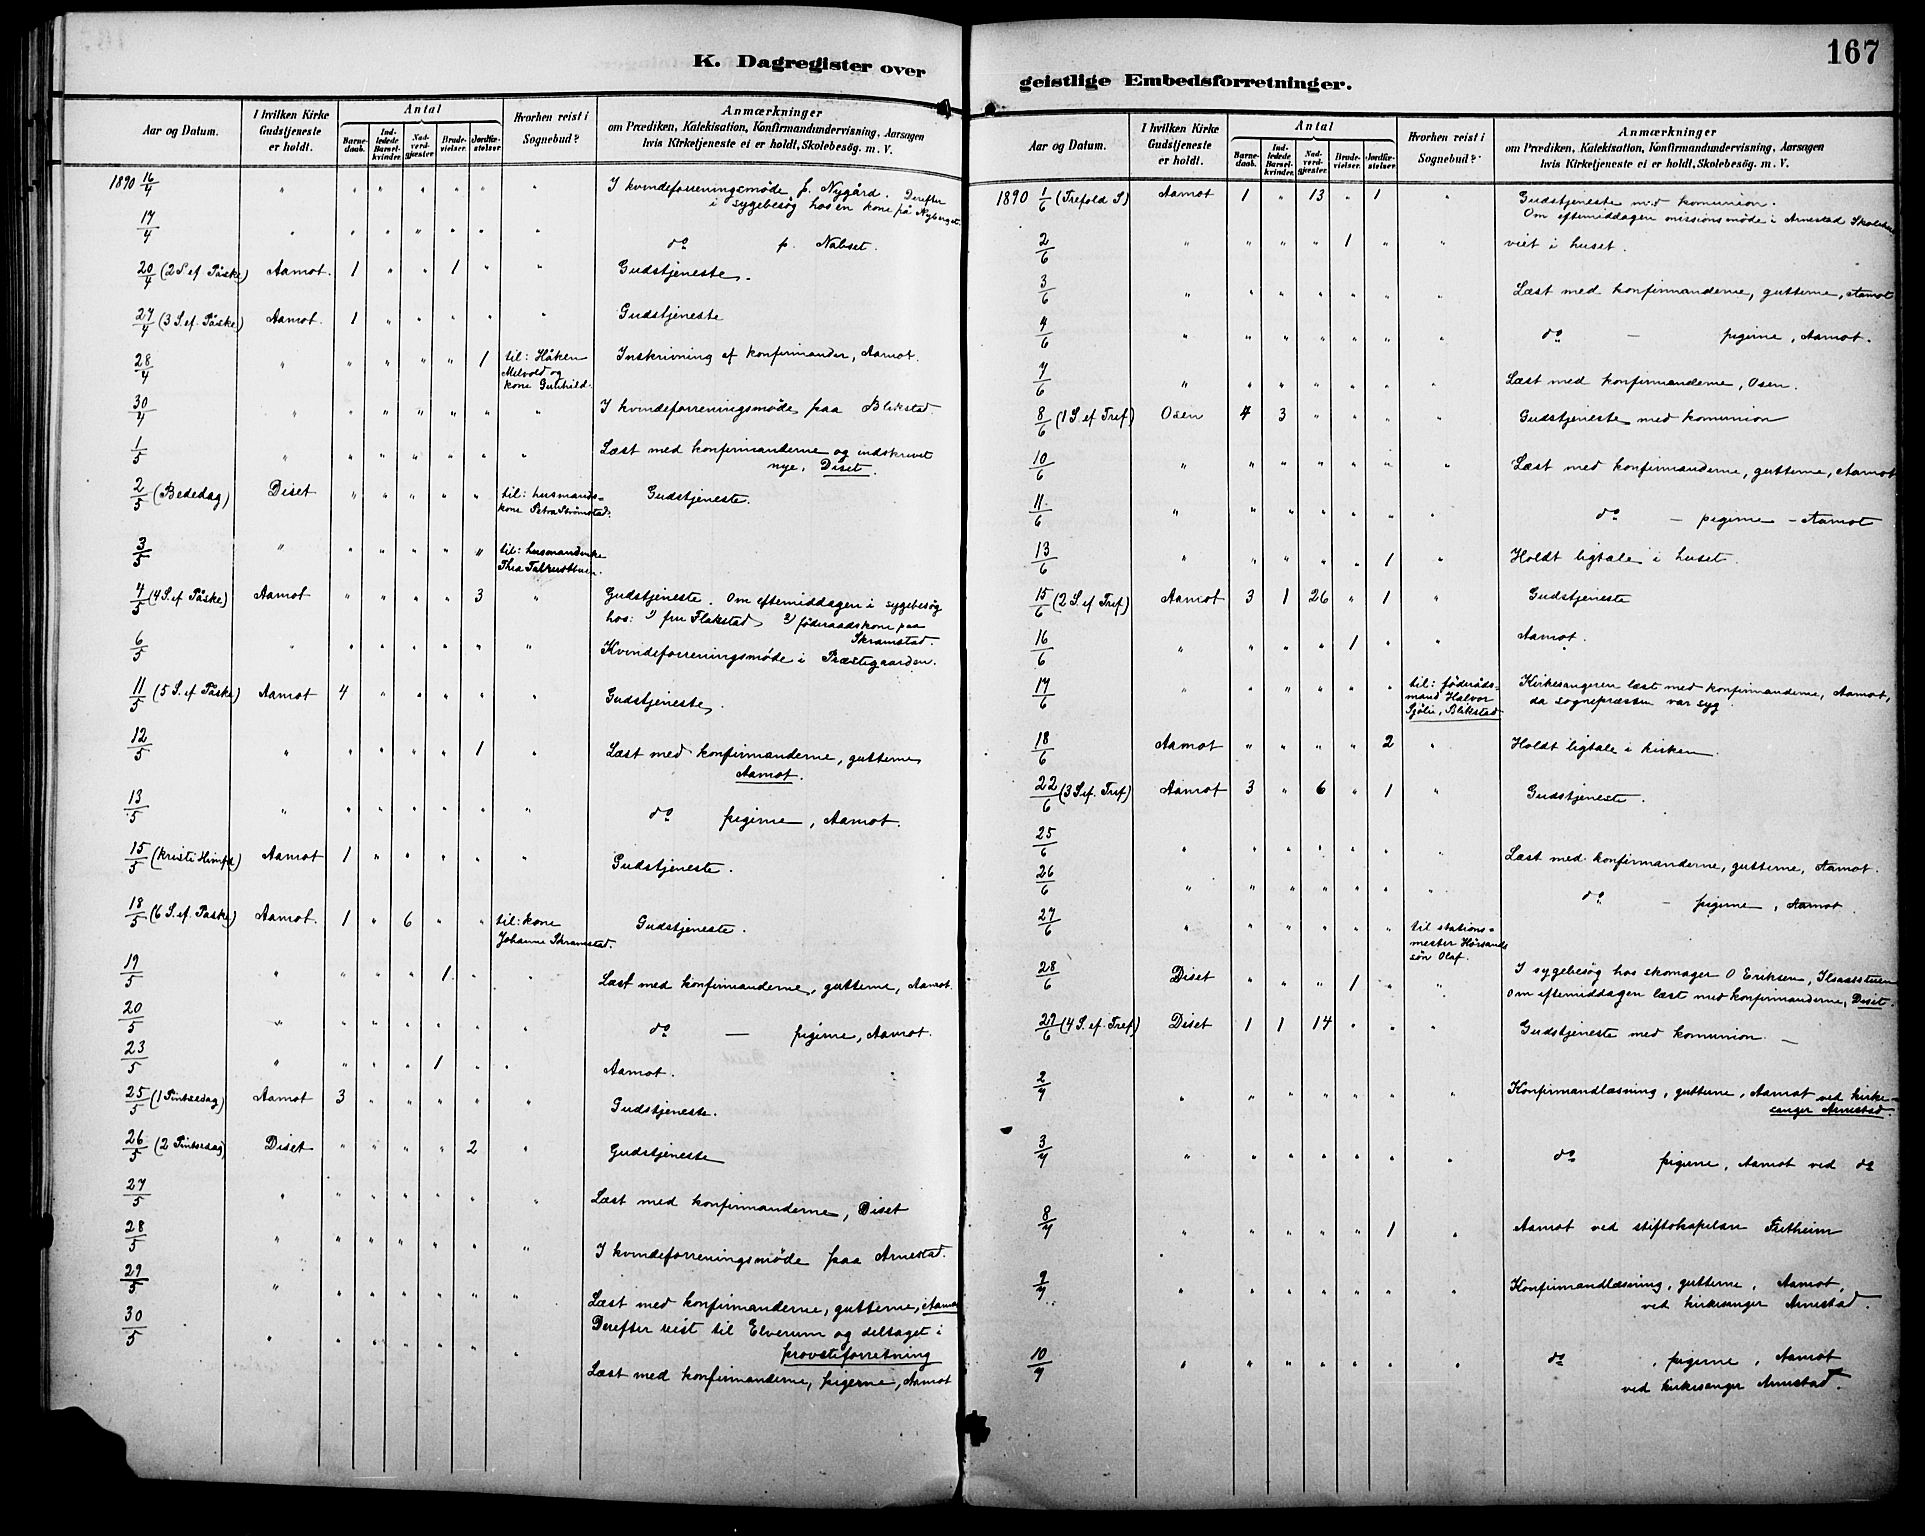 K. Dagregister over
Aar og Datum. I hvilken Kirke Gudstjeneste er holdt. Antal Barnedaab. Indledede Barselkvinder. Nadverdgjester. Brudevielser. Jordfæstelser. Hvorhen reist i Sognebud? Anmærkninger om Prædiken, Katekisation, Konfirmandundervisning, Aarsagen hvis Kirketjeneste ei er holdt, Skolebesøg. m. V.
1890 16/4 " " " " " " " I kvindeforreningsmøde p. Nygård. Derefter
i sygebesøg hos en kone på Nyberget.
17/4 " " " " " " " do p. Nabset.
20/4 (2 S. ef. Påske) Aamot. 1 " " 1 " " Gudstjeneste.
27/4 (3 S. ef. Påske) Aamot. 1 " " " " " Gudstjeneste
28/4 " " " " " 1 til: Håken Inskrivning af konfirmander, Aamot.
Melvold og
kone Gunhild.
30/4 " " " " " " " I kvindeforreningsmøde paa Blikstad.
1/5 " " " " " " " Læst med konfirmanderne og indskrevet
nye, Diset.
2/5 (Bededag) Diset " " " " " til: husmands- Gudstjeneste.
kone Petra Strømstad.
3/5 " " " " " " til: husmandenke
Thea
4/5 (4 S. ef Påske) Aamot " " " " 3 " Gudstjeneste. Om eftemiddagen i sygebesøg
hos: 1) fru Flakstad, 2) föderaadskone paa
Skramstad.
6/5 " " " " " " " Kvindeforreningsmøde i Præstegaarden.
11/5 (5 S. ef Påske) Aamot 4 " " " " " Gudstjeneste.
12/5 " " " " " 1 " Læst med konfirmanderne, gutterne
Aamot.
13/5 " " " " " " " do pigerne, Aamot.
15/5 (Kristi Himfd) Aamot 1 " " " " " Gudstjeneste.
18/5 (6 S. ef. Paske) Aamot. 1 " 6 " " til: kone Gudstjeneste.
Johanne Skramstad.
19/5 " " " " 1 " " Læst med konfirmanderne, gutterne, Aamot.
20/5 " " " " " " " do — pigerne, Aamot.
23/5 " " " " 1 " " Aamot.
25/5 (1 Pintsedag) Aamot 3 " " " " " Gudstjeneste.
26/5 (2 Pintsedag) Diset " " " " 2 " Gudstjeneste
27/5 " " " " " " " Læst med konfirmanderne, Diset
28/5 " " " " " " " I kvindeforreningsmøde paa Arnestad.
29/5 " " " " " " " Læst med konfirmanderne, gutterne, Aamot
Derefter reist til Elverum og deltaget i
provstiforretning
30/5 " " " " " " " Læst med konfirmanderne, pigerne, Aamot
167
geistlige Embedsforretninger.
Aar og Datum. I hvilken Kirke Gudstjeneste er holdt. Antal Barnedaab. Indledede Barselkvinder. Nadverdgjester. Brudevielser. Jordfæstelser. Hvorhen reist i Sognebud? Anmærkninger om Prædiken, Katekisation, Konfirmandundervisning, Aarsagen hvis Kirketjeneste ei er holdt, Skolebesøg. m. V.
1890 1/6 (Trefold S) Aamot 1 " 13 " 1 " Gudstjeneste med komunion.
Om eftemiddagen missionsmøde i Arnestad
2/6 " " " " 1 " " viet i huset.
3/6 " " " " " " " Læst med konfirmanderne, gutterne, Aamot
4/6 " " " " " " " do — pigerne, Aamot.
7/6 " " " " " " " Læst med konfirmanderne, Osen.
8/6 (1 S. ef Tref) Osen 4 3 " " " " Gudstjeneste med komunion
10/6 " " " " " " " Læst med konfirmanderne, gutterne, Aamot
11/6 " " " " " " " do — pigerne — Aamot
13/6 " " " " " 1 " Holdt ligtale i huset.
15/6 (2 S. ef Tref) Aamot 3 1 26 " 1 " Gudstjeneste
16/6 " " " " 1 " " Aamot.
17/6 " " " " " " til: föderåds- Kirkesangeren læst med konfirmanderne, Aamot,
mand Halvor da sognepræsten var syg.
Sjølie, Blikstad
18/6 Aamot " " " " 2 " Holdt ligtale i kirken.
22/6 (3 S. ef. Tref) Aamot 3 " 6 " 1 " Gudstjeneste.
25/6 " " " " " " " Læst med konfirmanderne, gutterne, Aamot.
26/6 " " " " " " " do — pigerne, Aamot.
27/6 " " " " " " til stations-
mester Hørsands
sön Olaf.
28/6 Diset " " " 1 " " I sygebesøg hos skomager O Eriksen,
Om eftemiddagen læst med konfirmanderne, Diset.
29/6 (4 S. ef. Tref) Diset 1 1 14 " " " Gudstjeneste med komunion. —
2/7 " " " " " " " Konfirmandlæsning, gutterne, Aamot ved kirke-
sanger Arnestad.
3/7 " " " " " " " do pigerne, Aamot ved do
8/7 " " " " " 1 " Aamot ved stiftskapelan Fritheim
9/7 " " " " " " " Konfirmandlæsning, gutterne, Aamot,
ved kirkesanger Arnestad.
10/7 " " " " " " " do , pigerne, Aamot
ved kirkesanger Arnestad.